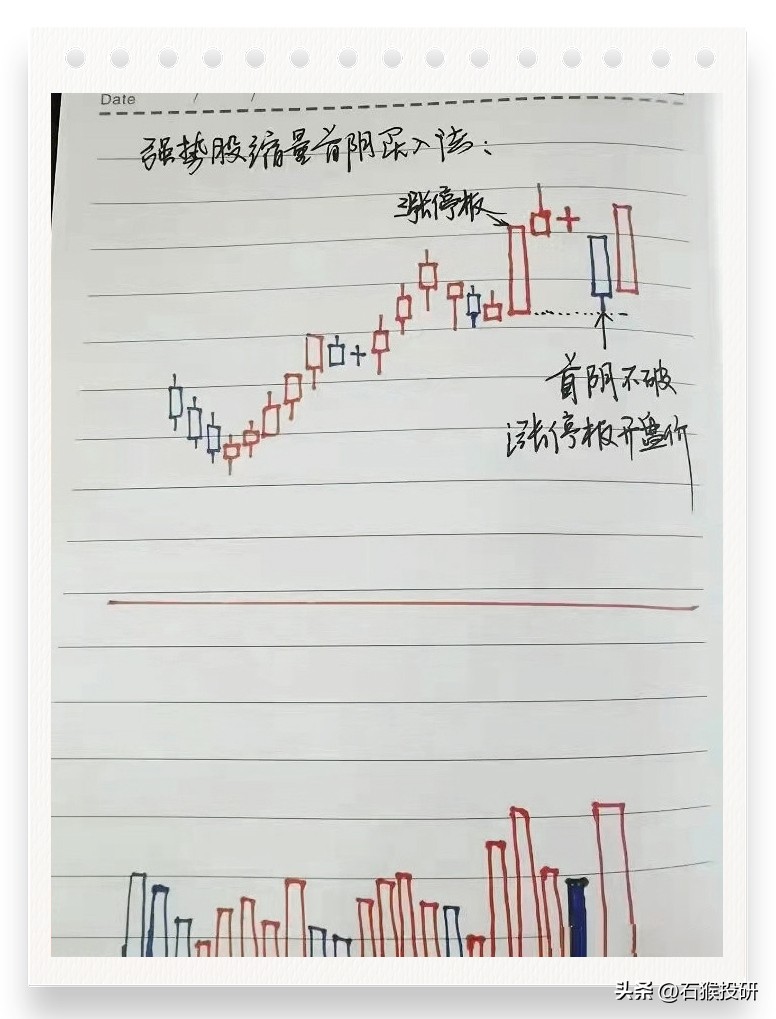 Date / /
强势股缩量首阴买入法：
涨停板
首阴不破
涨停板开盘价
头条 @石猴投研